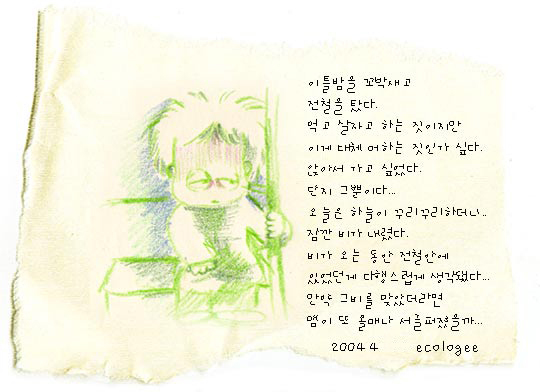 이틀밤을 꼬박새고
전철을 탔다.
먹고 살자고 하는 짓이지만
이게 대체 머하는 짓인가 싶다.
앉아서 가고 싶었다.
단지 그뿐이다...
오늘은 하늘이 꾸리꾸리하더니..
잠깐 비가 내렸다.
비가 오는 동안 전철안에
있었던게 다행스럽게 생각됐다...
만약 그비를 맞았더라면
맴이 또 올매나 서글퍼졌을까...
2004 4 ecologee